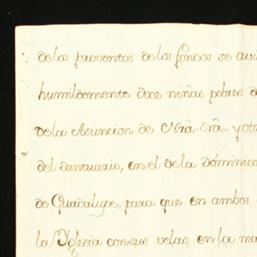 de los proventos de los fondos se
humildemente doce niñas pobres
de la Asuncion de Nrã. Srã. y
del santuario, en el de la Dominica
de Guadalupe, para que en ambos
la Yglesia con sus velas, en la